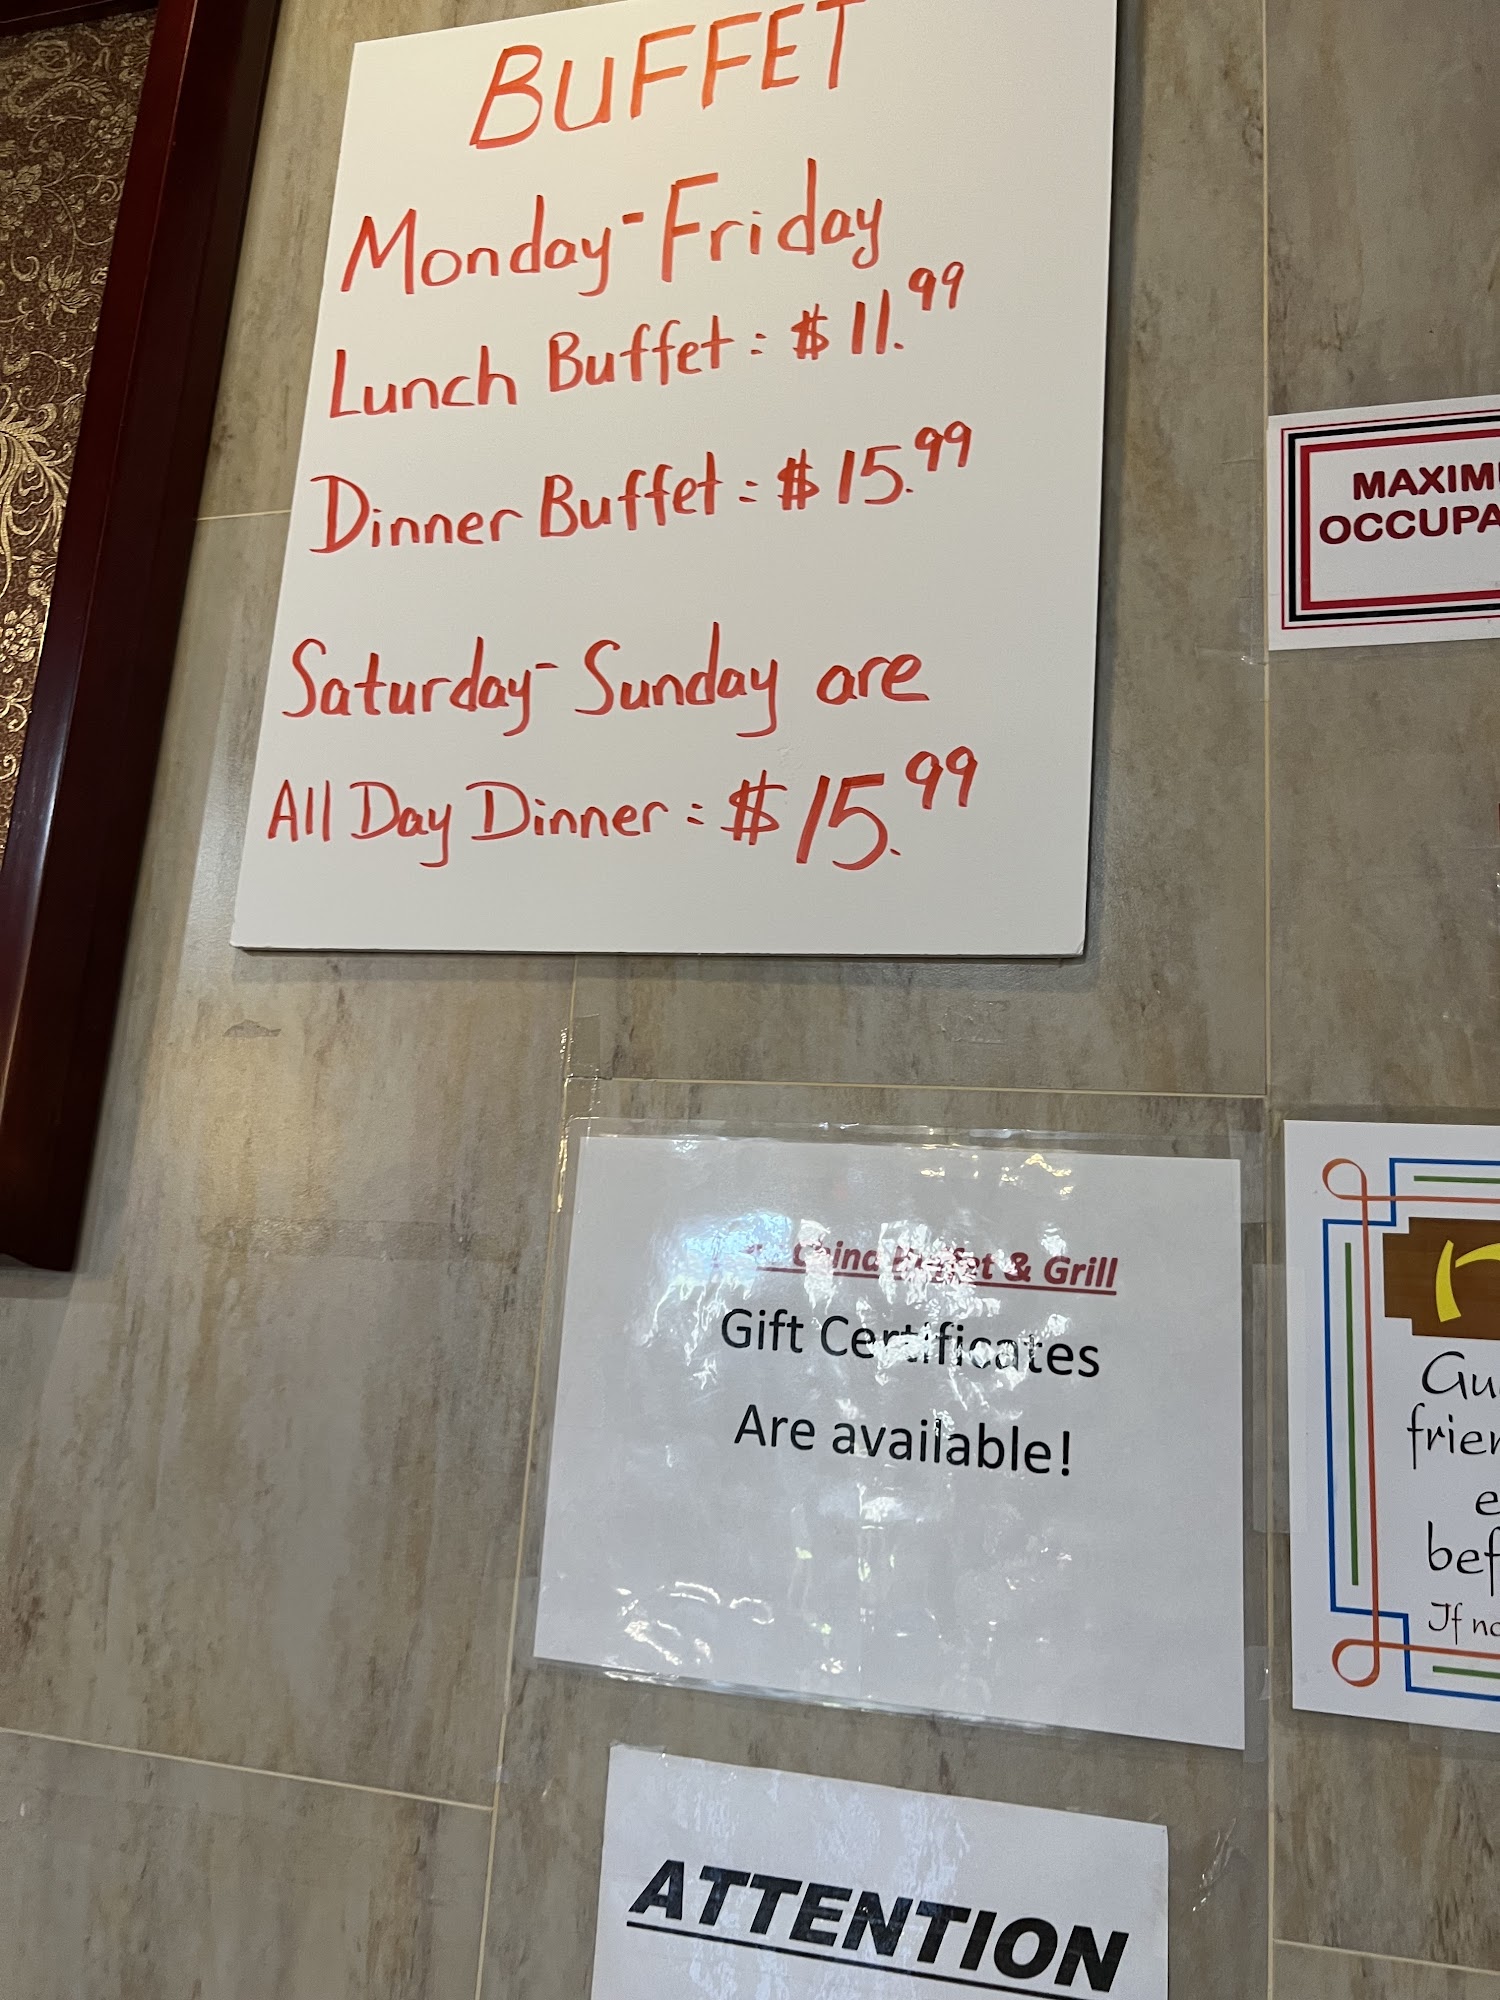 BUFFET
Monday-Friday
Lunch Buffet = $11.99
Dinner Buffet = $15.99
Saturday-Sunday are
All Day Dinner = $15.99
MAXIM
OCCUPA
China Buffet & Grill
Gift Certificates
Are available!
Gu
frien
e
bef
If no
ATTENTION